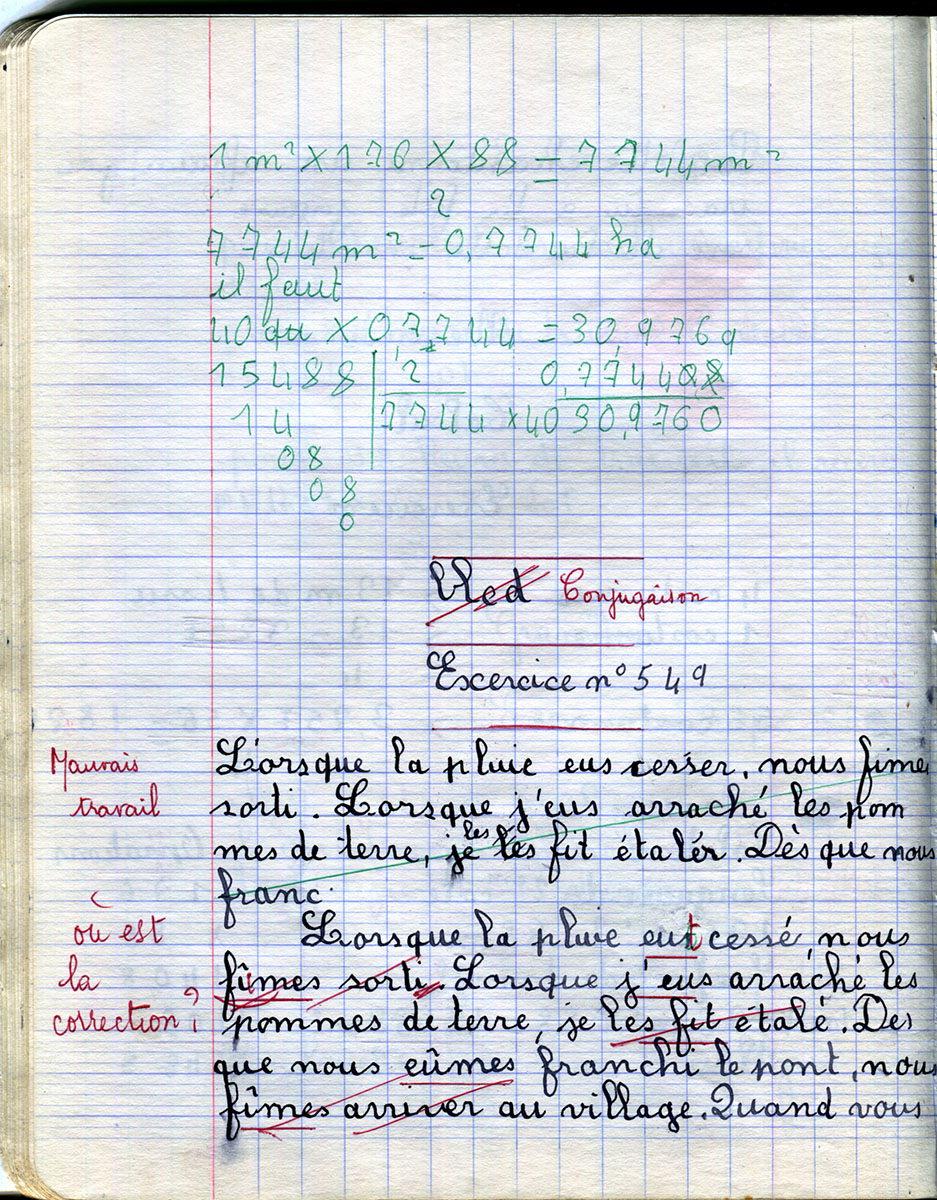 1 m² × 176 × 88 = 7744 m²
2
7744 m² = 0,7744 ha
il faut
40 qu × 0,7744 = 30,976 q
15488 2 0,7744
14 7744 × 40 30,9760
08
08
0
Conjugaison
Excercice n° 549
Mauvais travail
Lorsque la pluie eus cesser, nous fîmes
sorti. Lorsque j'eus arraché les pom
mes de terre, je les fit étalér. Dès que nous
franc
où est la correction ?
Lorsque la pluie eut cessé, nous
fûmes sorti. Lorsque j'eus arraché les
pommes de terre, je les fit étalé. Des
que nous eûmes franchi le pont, nous
fûmes arriver au village. Quand vous